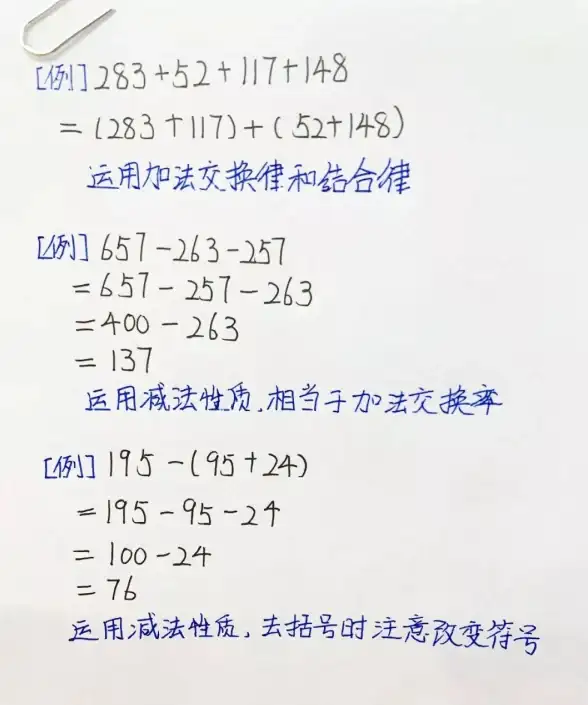 [例] 283+52+117+148
=(283+117)+(52+148)
运用加法交换律和结合律
[例] 657-263-257
=657-257-263
=400-263
=137
运用减法性质,相当于加法交换率
[例] 195-(95+24)
=195-95-24
=100-24
=76
运用减法性质,去括号时注意改变符号